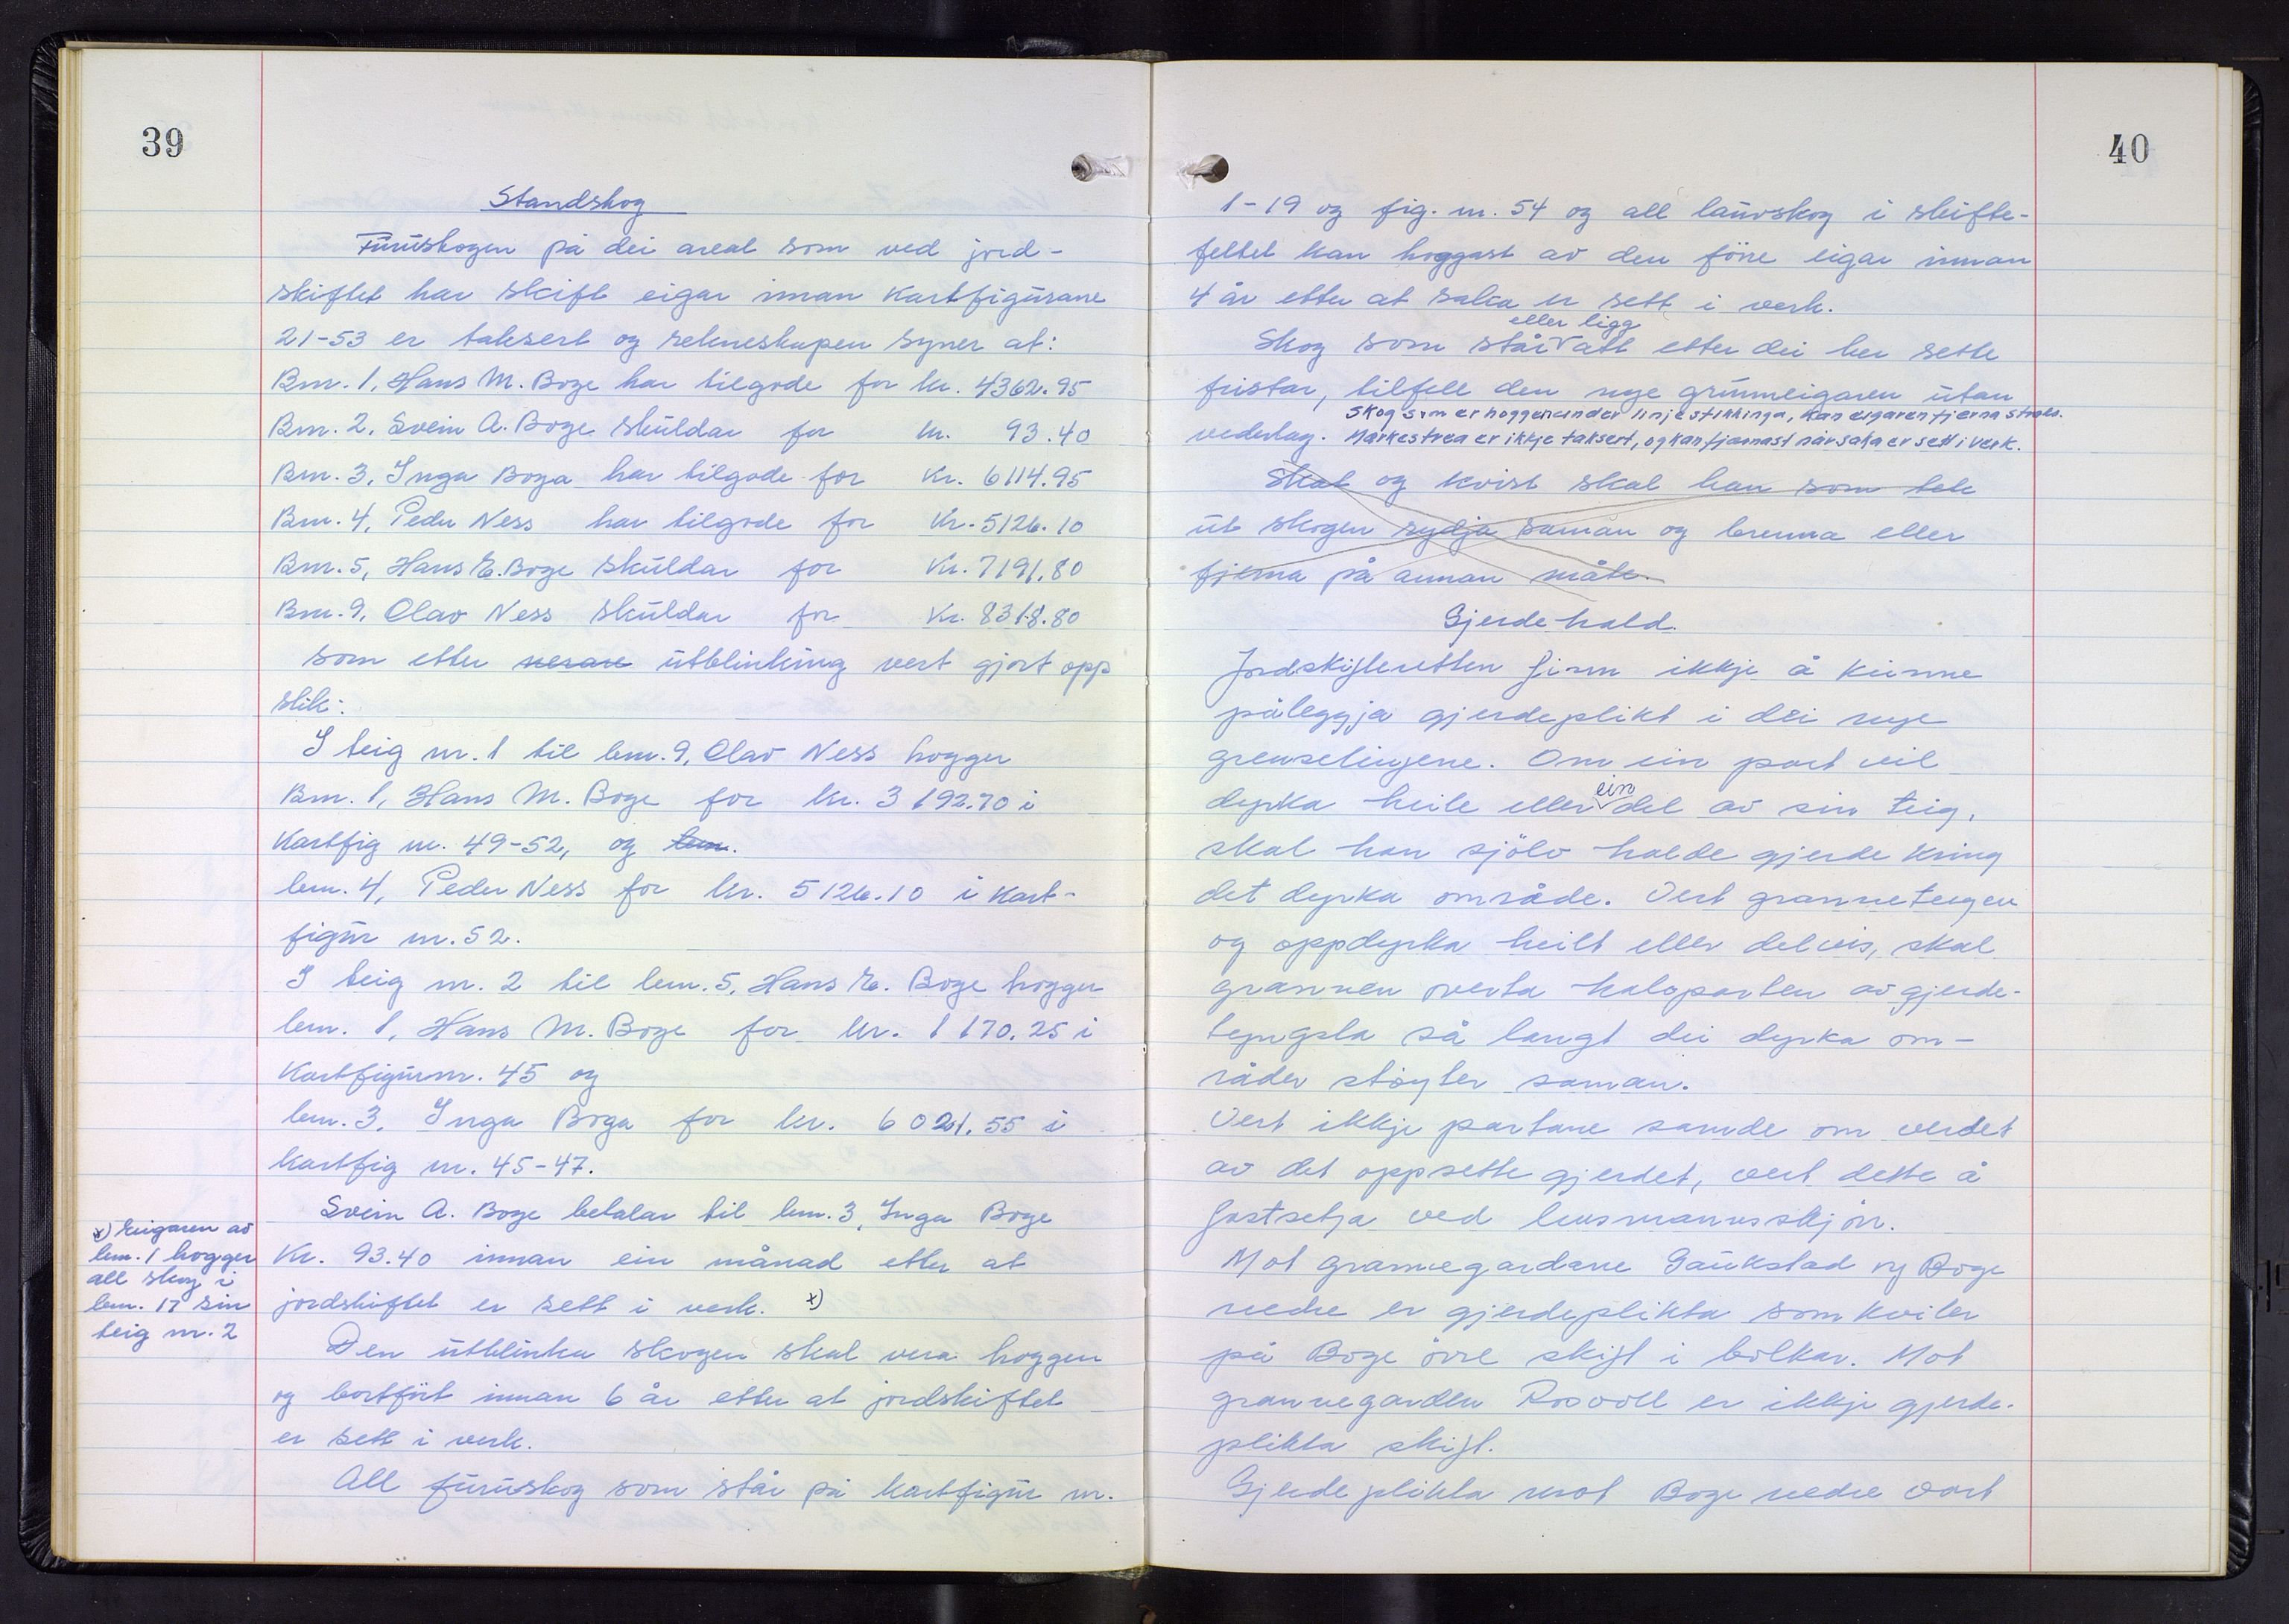 39
Standskog
Furuskogen på dei areal som ved jord-
skiftet har skift eigar innan kartfigurane
21-53 er taksert og rekneskapen syner at:
Bnr. 1, Hans M. Boge har tilgode for kr. 4362.95
Bnr. 2. Svein A. Boge skuldar for kr. 93.40
Bnr. 3, Inga Boga har tilgode for Kr. 6114.95
Bnr. 4, Peder Ness har tilgode for Kr. 5126.10
Bnr. 5, Hans E. Boge skuldar for Kr. 7191.80
Bnr. 9, Olav Ness skuldar for Kr. 8318.80
som etter utblinking vert gjort opp
slik:
I teig nr. 1 til bnr. 9, Olav Ness hogger
Bnr. 1, Hans M. Boge for kr. 3192.70 i
Kartfig nr. 49-52, og bnr.
bnr. 4, Peder Ness for kr. 5126.10 i kart-
figur nr. 52.
I teig nr. 2 til bnr. 5, Hans E. Boge hogger
bnr. 1, Hans M. Boge for kr. 1170.25 i
Kartfigurnr. 45 og
bnr. 3. Inga Boga for kr. 6021.55 i
kartfig nr. 45-47.
Svein A. Boge betalar til bnr. 3, Inga Boge
Kr. 93.40 innan ein månad etter at
jordskiftet er sett i verk. x)
x) Eigaren av
bnr. 1 hogger
all skog i
bnr. 17 sin
teig nr. 2
Den utblinka skogen skal vera hoggen
og bortført innan 6 år etter at jordskiftet
er sett i verk.
All furuskog som står på kartfigur nr.
40
1-19 og fig. nr. 54 og all lauvskog i skifte-
feltet kan hoggast av den före eigar innan
4 år etter at saka er sett i verk.
eller ligg
Skog som står att etter dei her sette
fristar, tilfell den nye grunneigaren utan
Skog som er hoggen under linjestikkinga, kan eigaren fjerna straks.
vederlag. Markestrea er ikkje taksert, og kan fjernast når saka er sett i verk.
Skat og kvist skal han som tek
ut skogen rydja saman og brenna eller
fjerna på annan måte.
Gjerdehald.
Jordskifteretten finn ikkje å kunne
påleggja gjerdeplikt i dei nye
grenselinjene. Om ein part vil
ein
dyrka heile eller del av sin teig,
skal han sjölv halde gjerde kring
det dyrka område. Vert granneteigen
og oppdyrka heilt eller delvis, skal
grannen overta halvparten av gjerde-
tyngsla så langt dei dyrka om-
råder støyter saman.
Vert ikkje partane samde om verdet
av det oppsette gjerdet, vert dette å
fastsetja ved lensmannsskjön.
Mot grannegardane Gaukstad og Boge
nedre er gjerdeplikta som kviler
på Boge övre skift i bolkar. Mot
grannegarden Rosvoll er ikkje gjerde-
plikta skift.
Gjerdeplikta mot Boge nedre vart